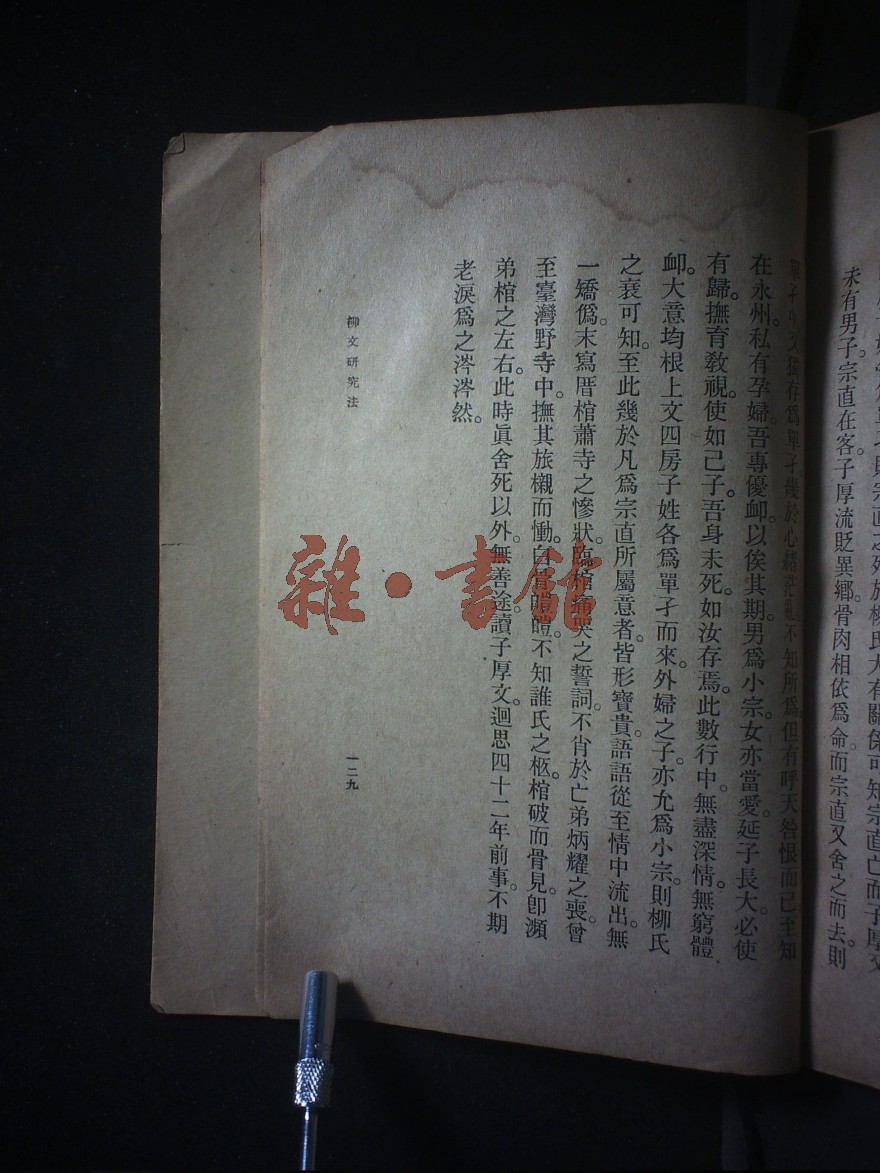 未有男子。宗直在客。子厚流貶異鄉。骨肉相依爲命。而宗直又舍之而去。則
單孑。又獨存爲單孑。幾於心緒茫亂。不知所爲。但有呼天咎恨而已。至知
在永州。私有孕婦。吾專優卹。以俟其期。男爲小宗。女亦當愛。延子長大。必使
有歸。撫育教視。使如己子。吾身未死。如汝存焉。此數行中。無盡深情。無窮體
卹。大意均根上文四房子姓各爲單孑而來。外婦之子。亦允爲小宗。則柳氏
之衰可知。至此幾於凡爲宗直所屬意者。皆形寶貴。語語從至情中流出。無
一矯僞。末寫厝棺蕭寺之慘狀。臨棺痛哭之誓詞。不肖於亡弟炳耀之喪。曾
至臺灣野寺中。撫其旅櫬而慟。白骨體體。不知誰氏之柩。棺破而骨見。卽瀕
弟棺之左右。此時眞舍死以外。無善途。讀子厚文。迴思四十二年前事。不期
老淚爲之涔涔然。
柳文研究法
一二九
雜·書館